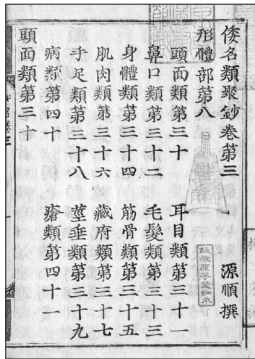 倭名類聚鈔卷第三
源順撰
形體部第八
頭面類第三十 耳目類第三十一
鼻口類第三十二 毛髮類第三十三
身體類第三十四 筋骨類第三十五
肌肉類第三十六 藏府類第三十七
手足類第三十八 莖垂類第三十九
病類第四十 瘡類第四十一
頭面類第三十